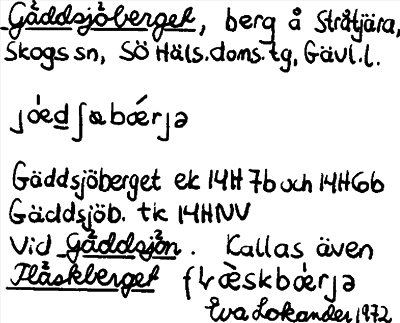 Gäddsjöberget, berg å Stråtjära,
Skogs sn, SÖ Häls. doms. tg, Gävl. l.
Gäddsjöberget ek 14H 7b och 14H6b
Gäddsjöb. tk 14HNV
Vid Gäddsjön. Kallas även
Flåskberget
Eva Lokander 1972